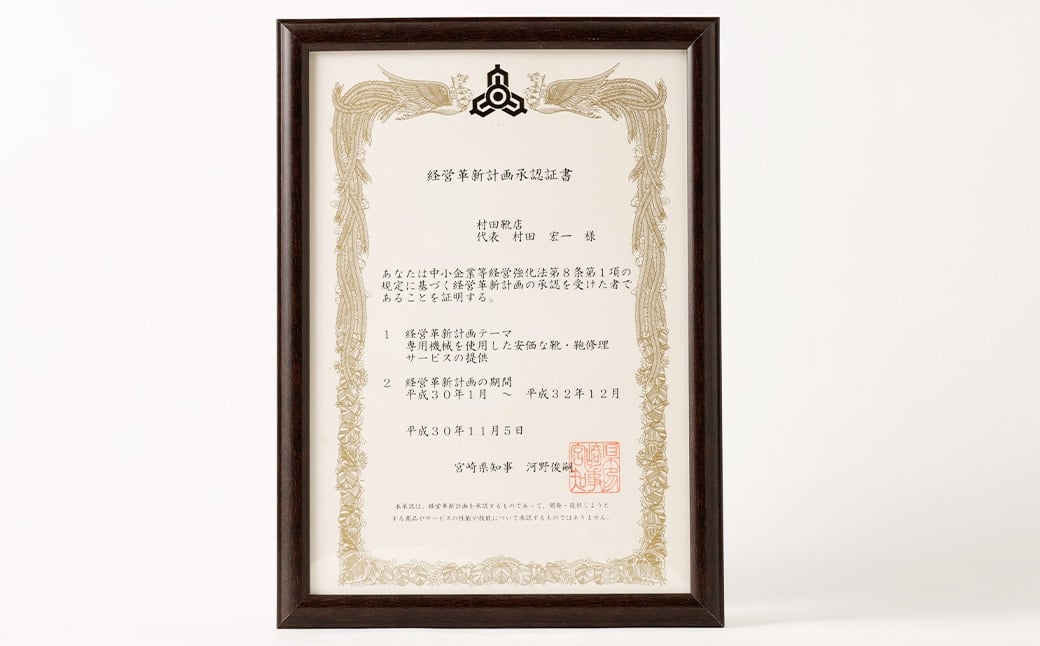 経営革新計画承認証書
村田靴店
代表　村田　宏一　様
あなたは中小企業等経営強化法第８条第１項の
規定に基づく経営革新計画の承認を受けた者で
あることを証明する。
１　経営革新計画テーマ
専用機械を使用した安価な靴・鞄修理
サービスの提供
２　経営革新計画の期間
平成３０年１月　～　平成３２年１２月
平成３０年１１月５日
宮崎県知事　河野俊嗣
本承認は、経営革新計画を承認するものであって、開発・提供しようと
する商品やサービスの性能や技能について承認するものではありません。